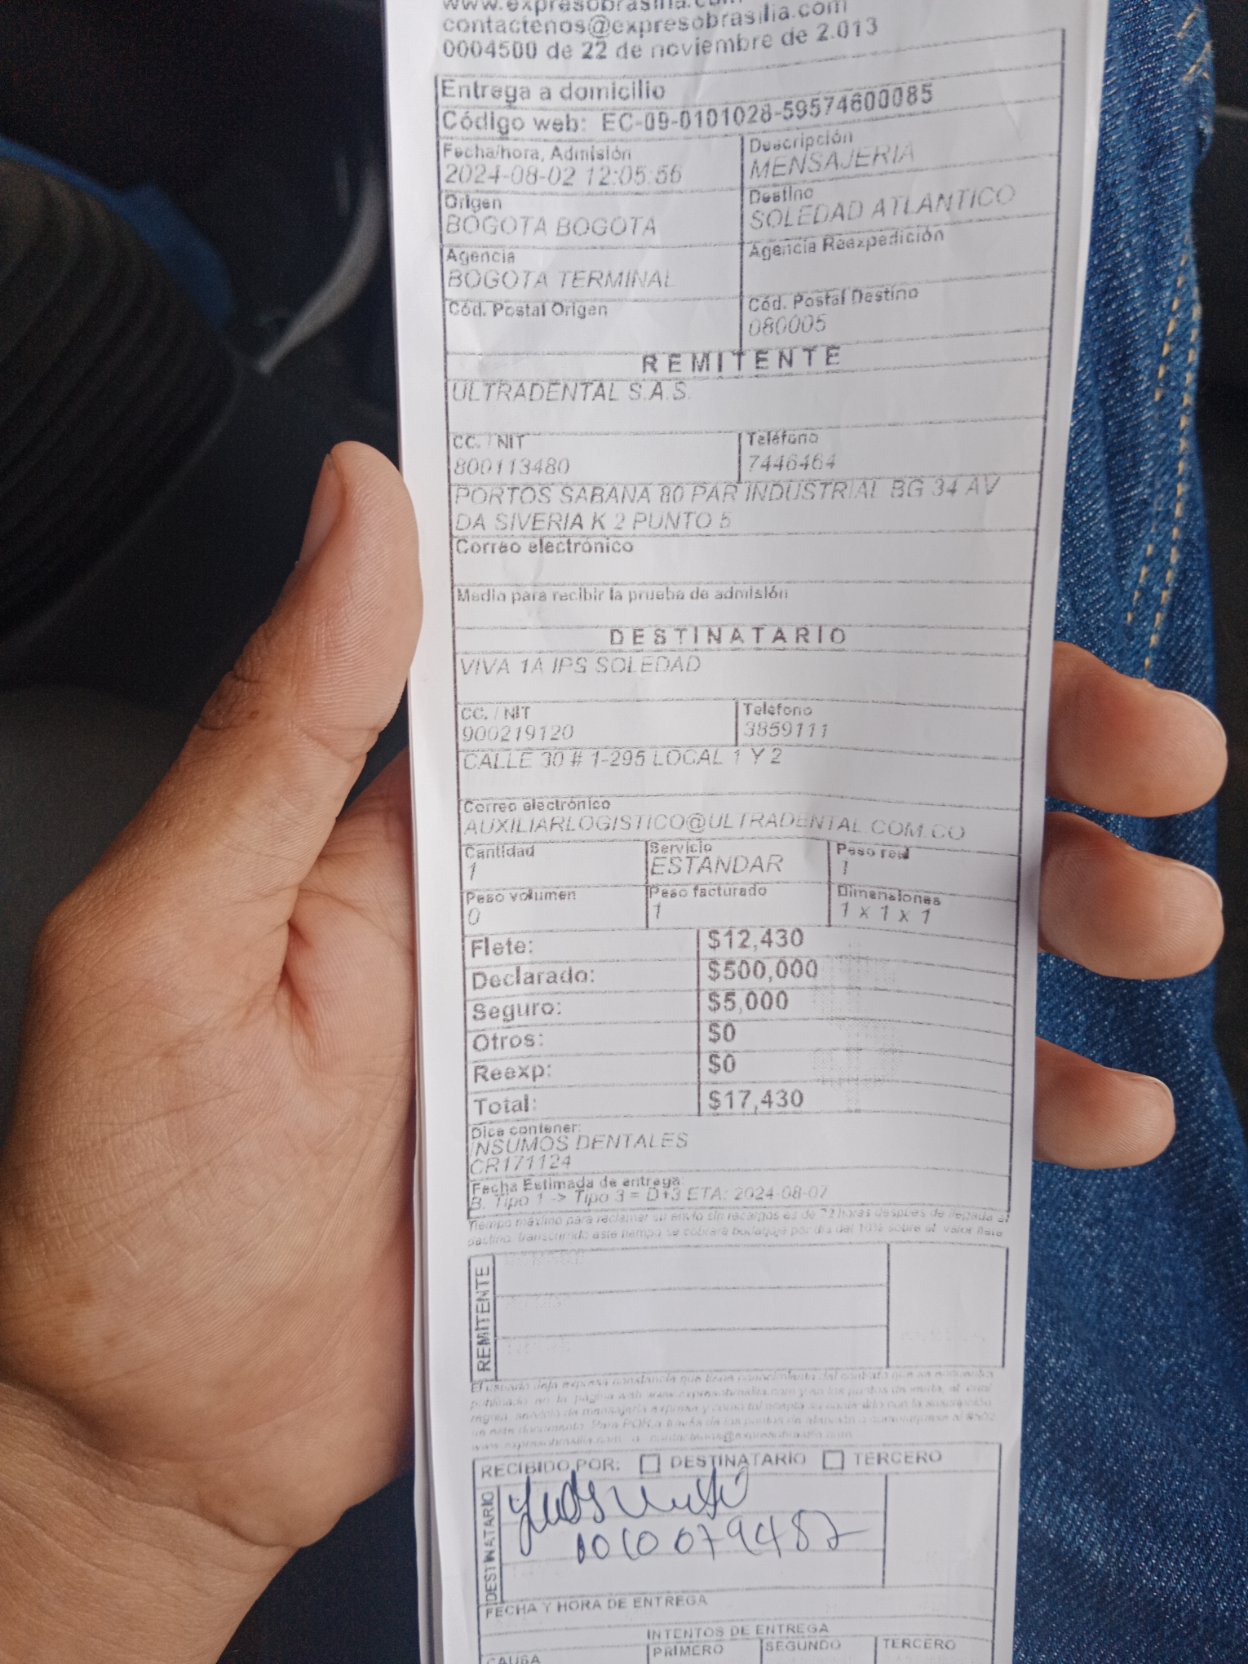 www.expresobrasilia.com
contactenos@expresobrasilia.com
0004500 de 22 de noviembre de 2.013
Entrega a domicilio
Código web: EC-09-0101028-59574600085
Fecha/hora, Admisión
2024-08-02 12:05:56
Descripción
MENSAJERIA
Origen
BOGOTA BOGOTA
Destino
SOLEDAD ATLANTICO
Agencia
BOGOTA TERMINAL
Agencia Reexpedición
Cód. Postal Origen
Cód. Postal Destino
080005
REMITENTE
ULTRADENTAL S.A.S.
CC. / NIT
800113480
Teléfono
7446464
PORTOS SABANA 80 PAR INDUSTRIAL BG 34 AV
DA SIVERIA K 2 PUNTO 5
Correo electrónico
Medio para recibir la prueba de admisión
DESTINATARIO
VIVA 1A IPS SOLEDAD
CC. / NIT
900219120
Teléfono
3859111
CALLE 30 # 1-295 LOCAL 1 Y 2
Correo electrónico
AUXILIARLOGISTICO@ULTRADENTAL.COM.CO
Cantidad
1
Servicio
ESTANDAR
Peso real
1
Peso volumen
0
Peso facturado
1
Dimensiones
1 x 1 x 1
Flete: $12,430
Declarado: $500,000
Seguro: $5,000
Otros: $0
Reexp: $0
Total: $17,430
Dice contener:
INSUMOS DENTALES
CR171124
Fecha Estimada de entrega:
B. Tipo 1 -> Tipo 3 = D+3 ETA: 2024-08-07
Tiempo máximo para reclamar su envío sin recargos es de 72 horas después de llegada al
destino, transcurrido este tiempo se cobrará bodegaje por día del 10% sobre el valor flete
REMITENTE
El usuario deja expresa constancia que tiene conocimiento del contrato que se encuentra
publicado en la página web www.expresobrasilia.com y en los puntos de venta, el cual
www.expresobrasilia.com
RECIBIDO POR: DESTINATARIO TERCERO
DESTINATARIO
FECHA Y HORA DE ENTREGA
INTENTOS DE ENTREGA
CAUSA PRIMERO SEGUNDO TERCERO